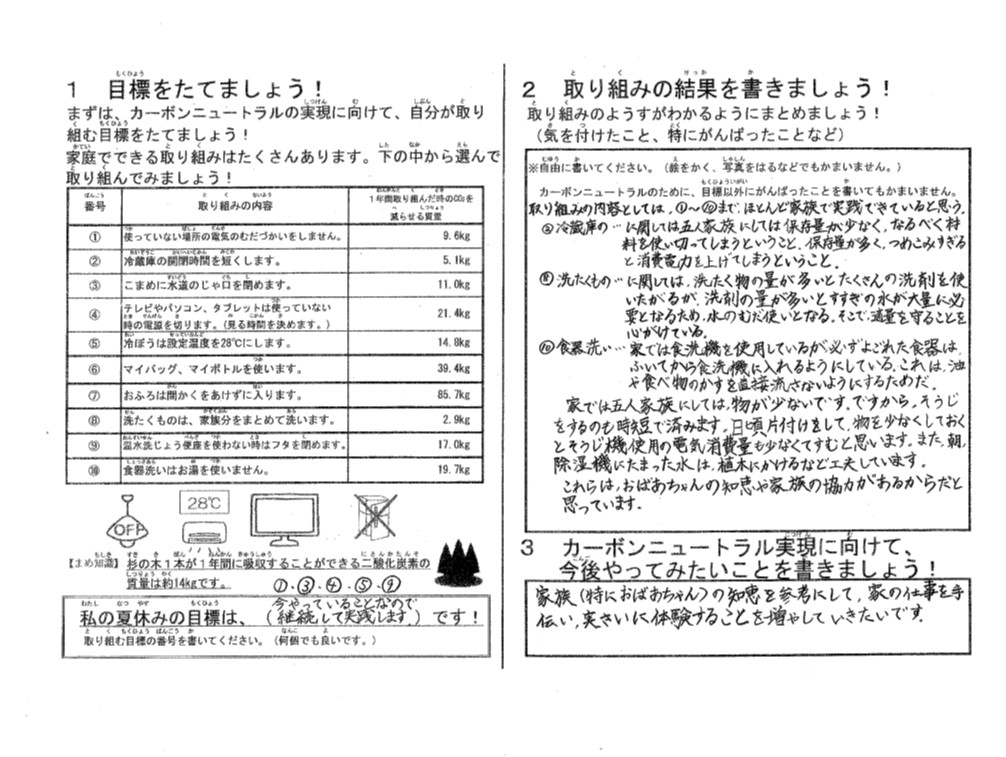 1 目標をたてましょう！
まずは、カーボンニュートラルの実現に向けて、自分が取り
組む目標をたてましょう！
家庭でできる取り組みはたくさんあります。下の中から選んで
取り組んでみましょう！
番号 取り組みの内容 1年間取り組んだ時のCO₂を減らせる質量
① 使っていない場所の電気のむだづかいをしません。 9.6kg
② 冷蔵庫の開閉時間を短くします。 5.1kg
③ こまめに水道のじゃ口を閉めます。 11.0kg
④ テレビやパソコン、タブレットは使っていない
時の電源を切ります。（見る時間を決めます。） 21.4kg
⑤ 冷ぼうは設定温度を28℃にします。 14.8kg
⑥ マイバッグ、マイボトルを使います。 39.4kg
⑦ おふろは間かくをあけずに入ります。 85.7kg
⑧ 洗たくものは、家族分をまとめて洗います。 2.9kg
⑨ 温水洗じょう便座を使わない時はフタを閉めます。 17.0kg
⑩ 食器洗いはお湯を使いません。 19.7kg
OFF
28℃
【まめ知識】杉の木1本が1年間に吸収することができる二酸化炭素の
質量は約14kgです。
①・③・④・⑤・⑨
私の夏休みの目標は、（今やっていることなので
継続して実践します）です！
取り組む目標の番号を書いてください。（何個でも良いです。）
2 取り組みの結果を書きましょう！
取り組みのようすがわかるようにまとめましょう！
（気を付けたこと、特にがんばったことなど）
※自由に書いてください。（絵をかく、写真をはるなどでもかまいません。）
カーボンニュートラルのために、目標以外にがんばったことを書いてもかまいません。
取り組みの内容としては、①〜⑩まで、ほとんど家族で実践できていると思う。
②冷蔵庫の…に関しては五人家族にしては保存量が少なく、なるべく材
料を使い切ってしまうということ、保存量が多く、つめこみすぎる
と消費電力を上げてしまうということ。
⑧洗たくもの…に関しては、洗たく物の量が多いとたくさんの洗剤を使
いたがるが、洗剤の量が多いとすすぎの水が大量に必
要となるため、水のむだ使いとなる。そこで、適量を守ることを
心がけている。
⑩食器洗い…家では食洗機を使用しているが必ずよごれた食器は、
ふいてから食洗機に入れるようにしている。これは、油
や食べ物のかすを直接流さないようにするためだ。
家では五人家族にしては、物が少ないです。ですから、そうじ
をするのも時短で済みます。日頃片付けをして、物を少なくしておく
とそうじ機使用の電気消費量も少なくてすむと思います。また、朝、
除湿機にたまった水は、植木にかけるなど工夫しています。
これらは、おばあちゃんの知恵や家族の協力があるからだと
思っています。
3 カーボンニュートラル実現に向けて、
今後やってみたいことを書きましょう！
家族（特におばあちゃん）の知恵を参考にして、家の仕事を手
伝い、実さいに体験することを増やしていきたいです。